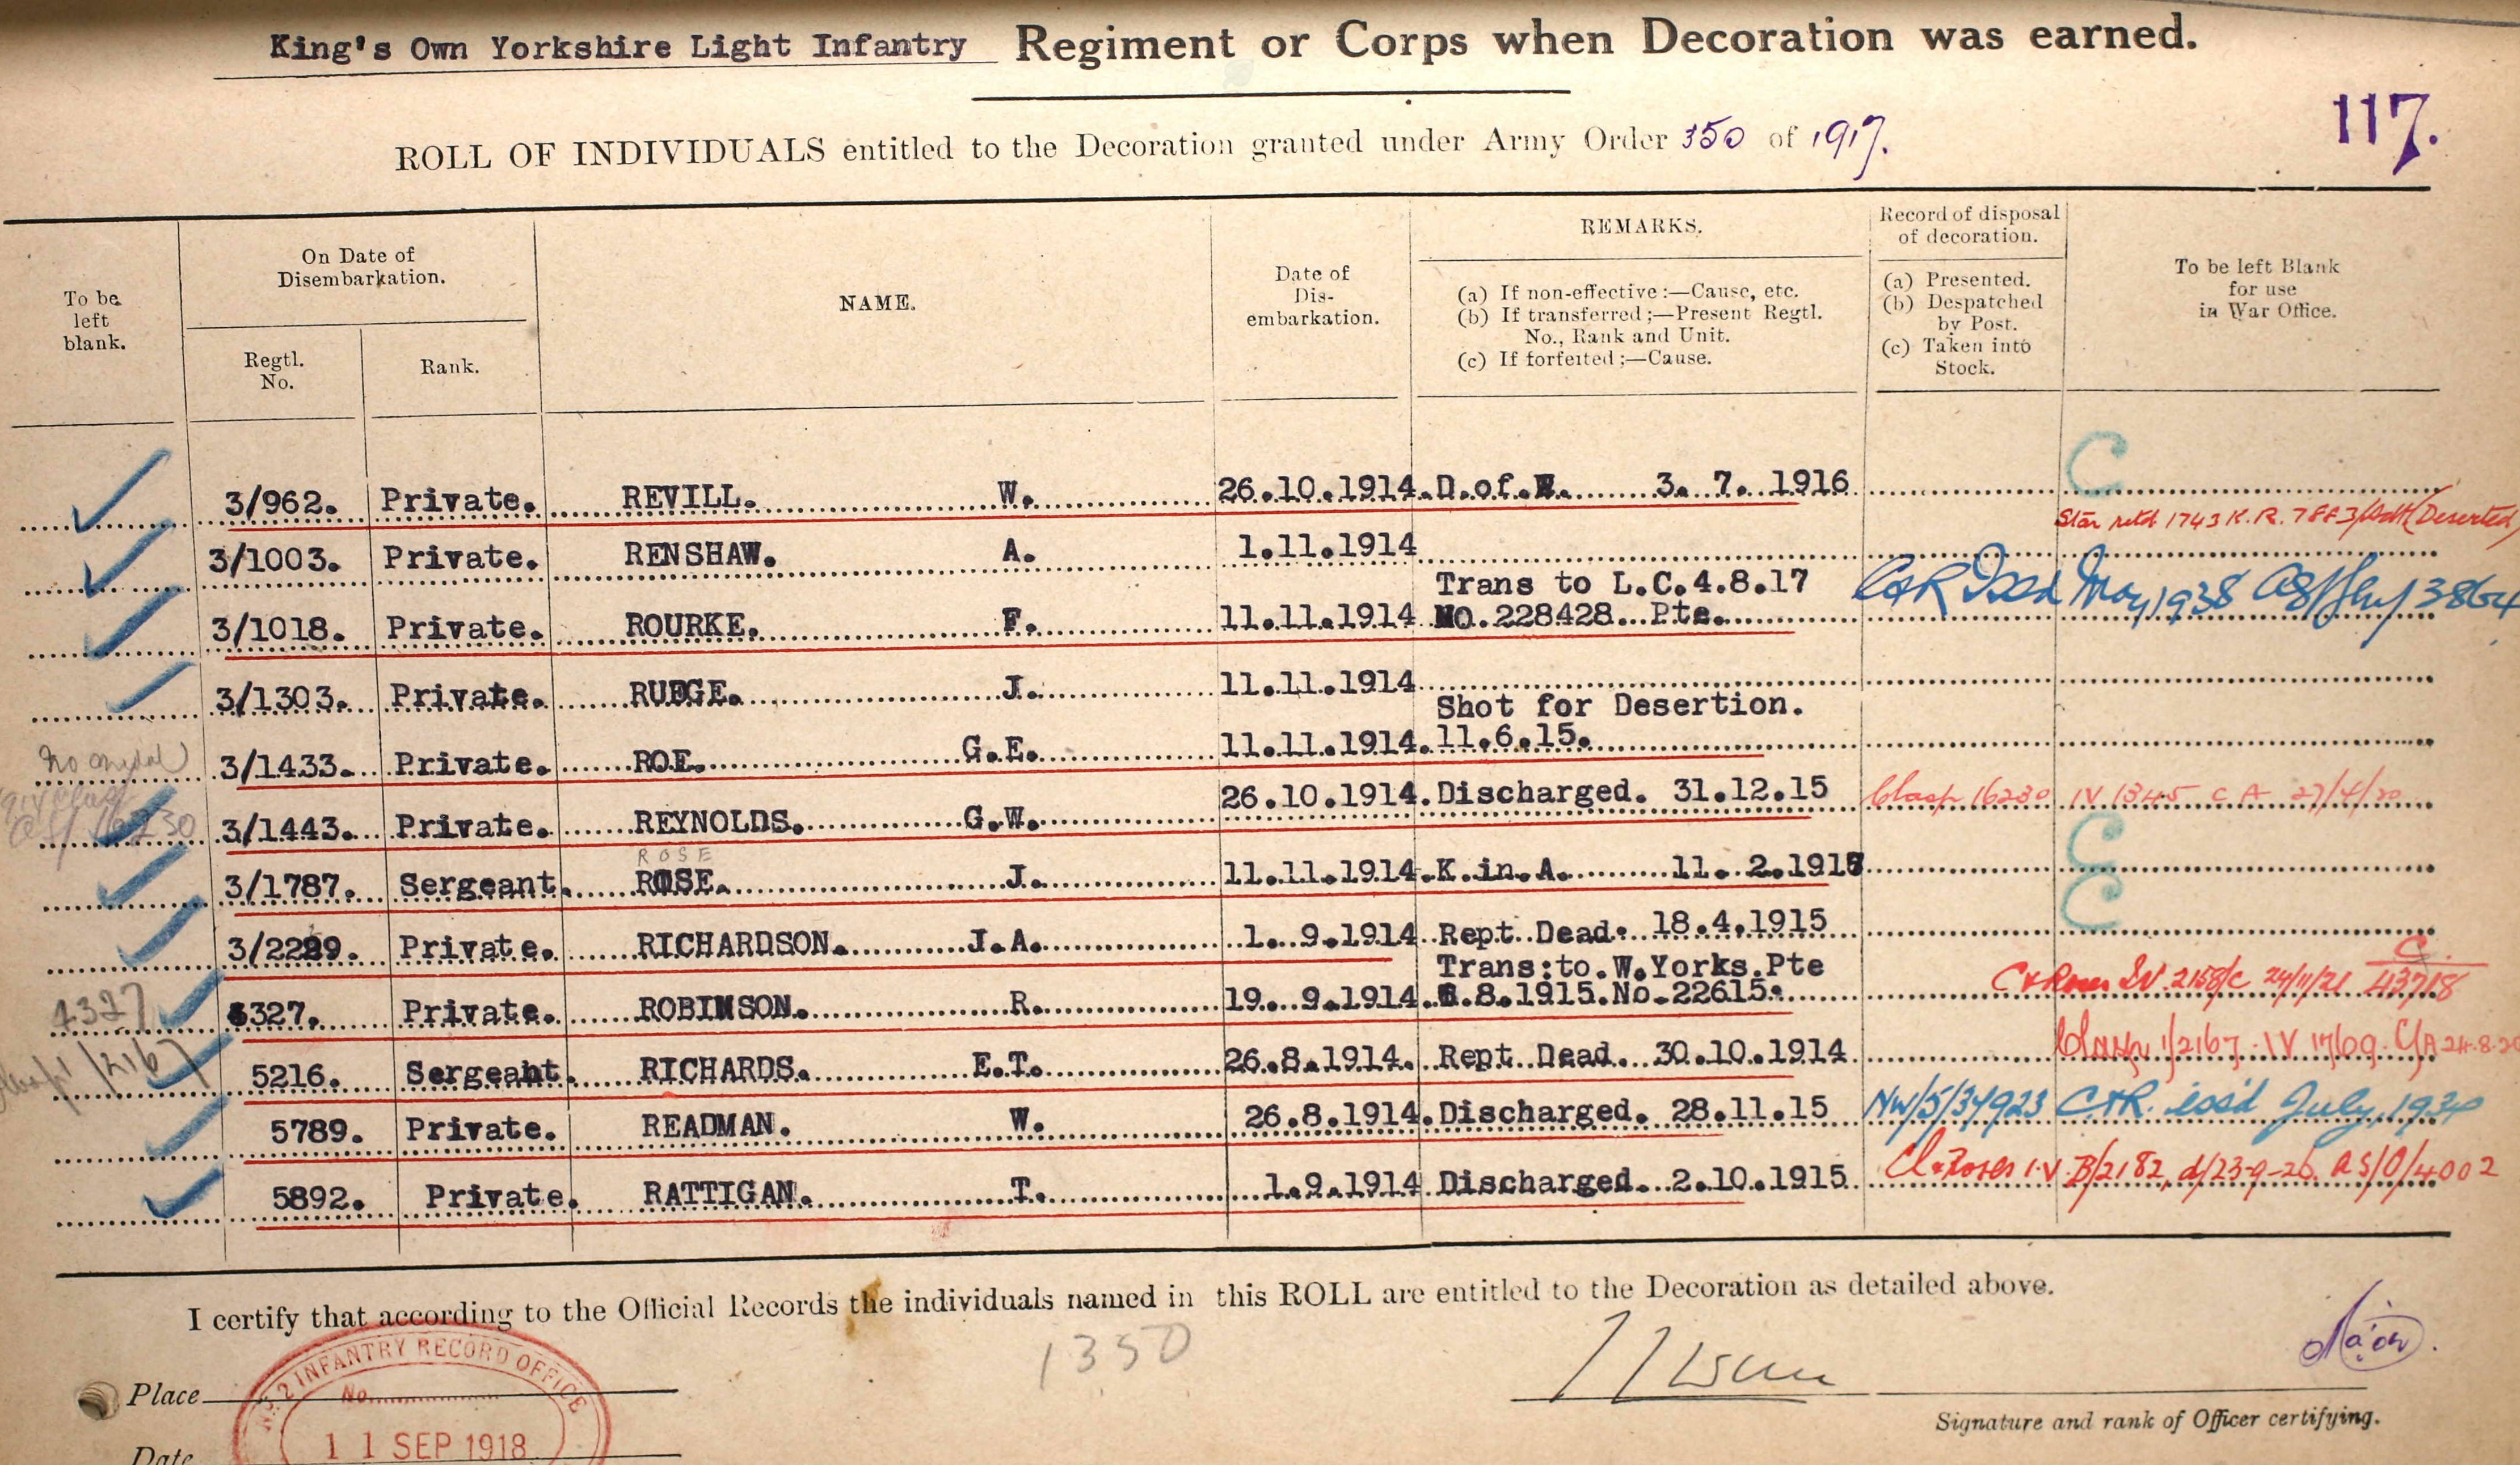 King's Own Yorkshire Light Infantry Regiment or Corps when Decoration was earned.
117.
ROLL OF INDIVIDUALS entitled to the Decoration granted under Army Order 350 of 1917.
To be left blank.
On Date of Disembarkation.
Regtl. No.
Rank.
NAME.
Date of Dis-embarkation.
REMARKS.
(a) If non-effective:—Cause, etc.
(b) If transferred;—Present Regtl. No., Rank and Unit.
(c) If forfeited;—Cause.
Record of disposal of decoration.
(a) Presented.
(b) Despatched by Post.
(c) Taken into Stock.
To be left Blank for use in War Office.
3/962. Private. REVILL. W. 26.10.1914. D.of.W. 3. 7. 1916 C
Star retd 1743 K.R. (Deserted)
3/1003. Private. RENSHAW. A. 1.11.1914
Trans to L.C.4.8.17
3/1018. Private. ROURKE. F. 11.11.1914 NO.228428 Pte. C&R Issd May 1938
3/1303. Private. RUDGE. J. 11.11.1914
Shot for Desertion.
No medal 3/1433. Private. ROE. G.E. 11.11.1914. 11.6.15.
16230 3/1443. Private. REYNOLDS. G.W. 26.10.1914. Discharged. 31.12.15 Clasp 16230 IV 1345 C A 27/4/20
ROSE
3/1787. Sergeant. ROSE. J. 11.11.1914. K.in.A. 11. 2.1915 C
3/2229. Private. RICHARDSON. J.A. 1. 9.1914 Rept Dead. 18.4.1915 C
Trans:to.W.Yorks.Pte
4327 4327. Private. ROBINSON. R. 19. 9.1914. 6.8.1915.No.22615. C & Roses IV 2158/C 24/11/21 C 43718
Clasp 1/2167 5216. Sergeant. RICHARDS. E.T. 26.8.1914. Rept Dead. 30.10.1914 Clasp 1/2167. IV 17/69. C/A 24.8.20
5789. Private. READMAN. W. 26.8.1914. Discharged. 28.11.15 NW/5/34923 C&R. issd July, 1934
5892. Private. RATTIGAN. T. 1.9.1914 Discharged. 2.10.1915 Cl & Roses I.V. B/2182, d/23-9-20. AS/O/4002
I certify that according to the Official Records the individuals named in this ROLL are entitled to the Decoration as detailed above.
1350
Major.
Place
Signature and rank of Officer certifying.
Date
No. 2 INFANTRY RECORD OFFICE
No.
11 SEP 1918